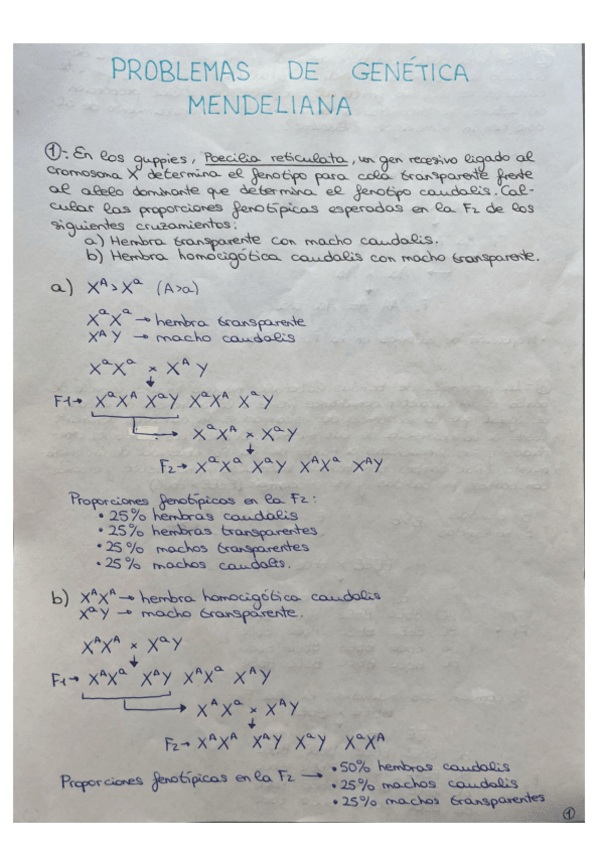 PROBLEMAS DE GENÉTICA
MENDELIANA
①-. En los guppies, Poecilia reticulata, un gen recesivo ligado al
cromosoma X determina el fenotipo para cola transparente frente
al alelo dominante que determina el fenotipo caudalis. Cal-
cular las proporciones fenotípicas esperadas en la F2 de los
siguientes cruzamientos:
a) Hembra transparente con macho caudalis.
b) Hembra homocigótica caudalis con macho transparente.
a) Xᴬ > Xᵃ (A>a)
XᵃXᵃ → hembra transparente
XᴬY → macho caudalis
XᵃXᵃ × XᴬY
F1→ XᵃXᴬ XᵃY XᵃXᴬ XᵃY
XᵃXᴬ × XᵃY
F2→ XᵃXᵃ XᵃY XᴬXᵃ XᴬY
Proporciones fenotípicas en la F2:
• 25% hembras caudalis
• 25% hembras transparentes.
• 25% machos transparentes
• 25% machos caudalis.
b) XᴬXᴬ → hembra homocigótica caudalis
XᵃY → macho transparente.
XᴬXᴬ × XᵃY
F1→ XᴬXᵃ XᴬY XᴬXᵃ XᴬY
XᴬXᵃ × XᴬY
F2→ XᴬXᴬ XᴬY XᵃY XᵃXᴬ
Proporciones fenotípicas en la F2 → • 50% hembras caudalis
• 25% machos caudalis.
• 25% machos transparentes
①